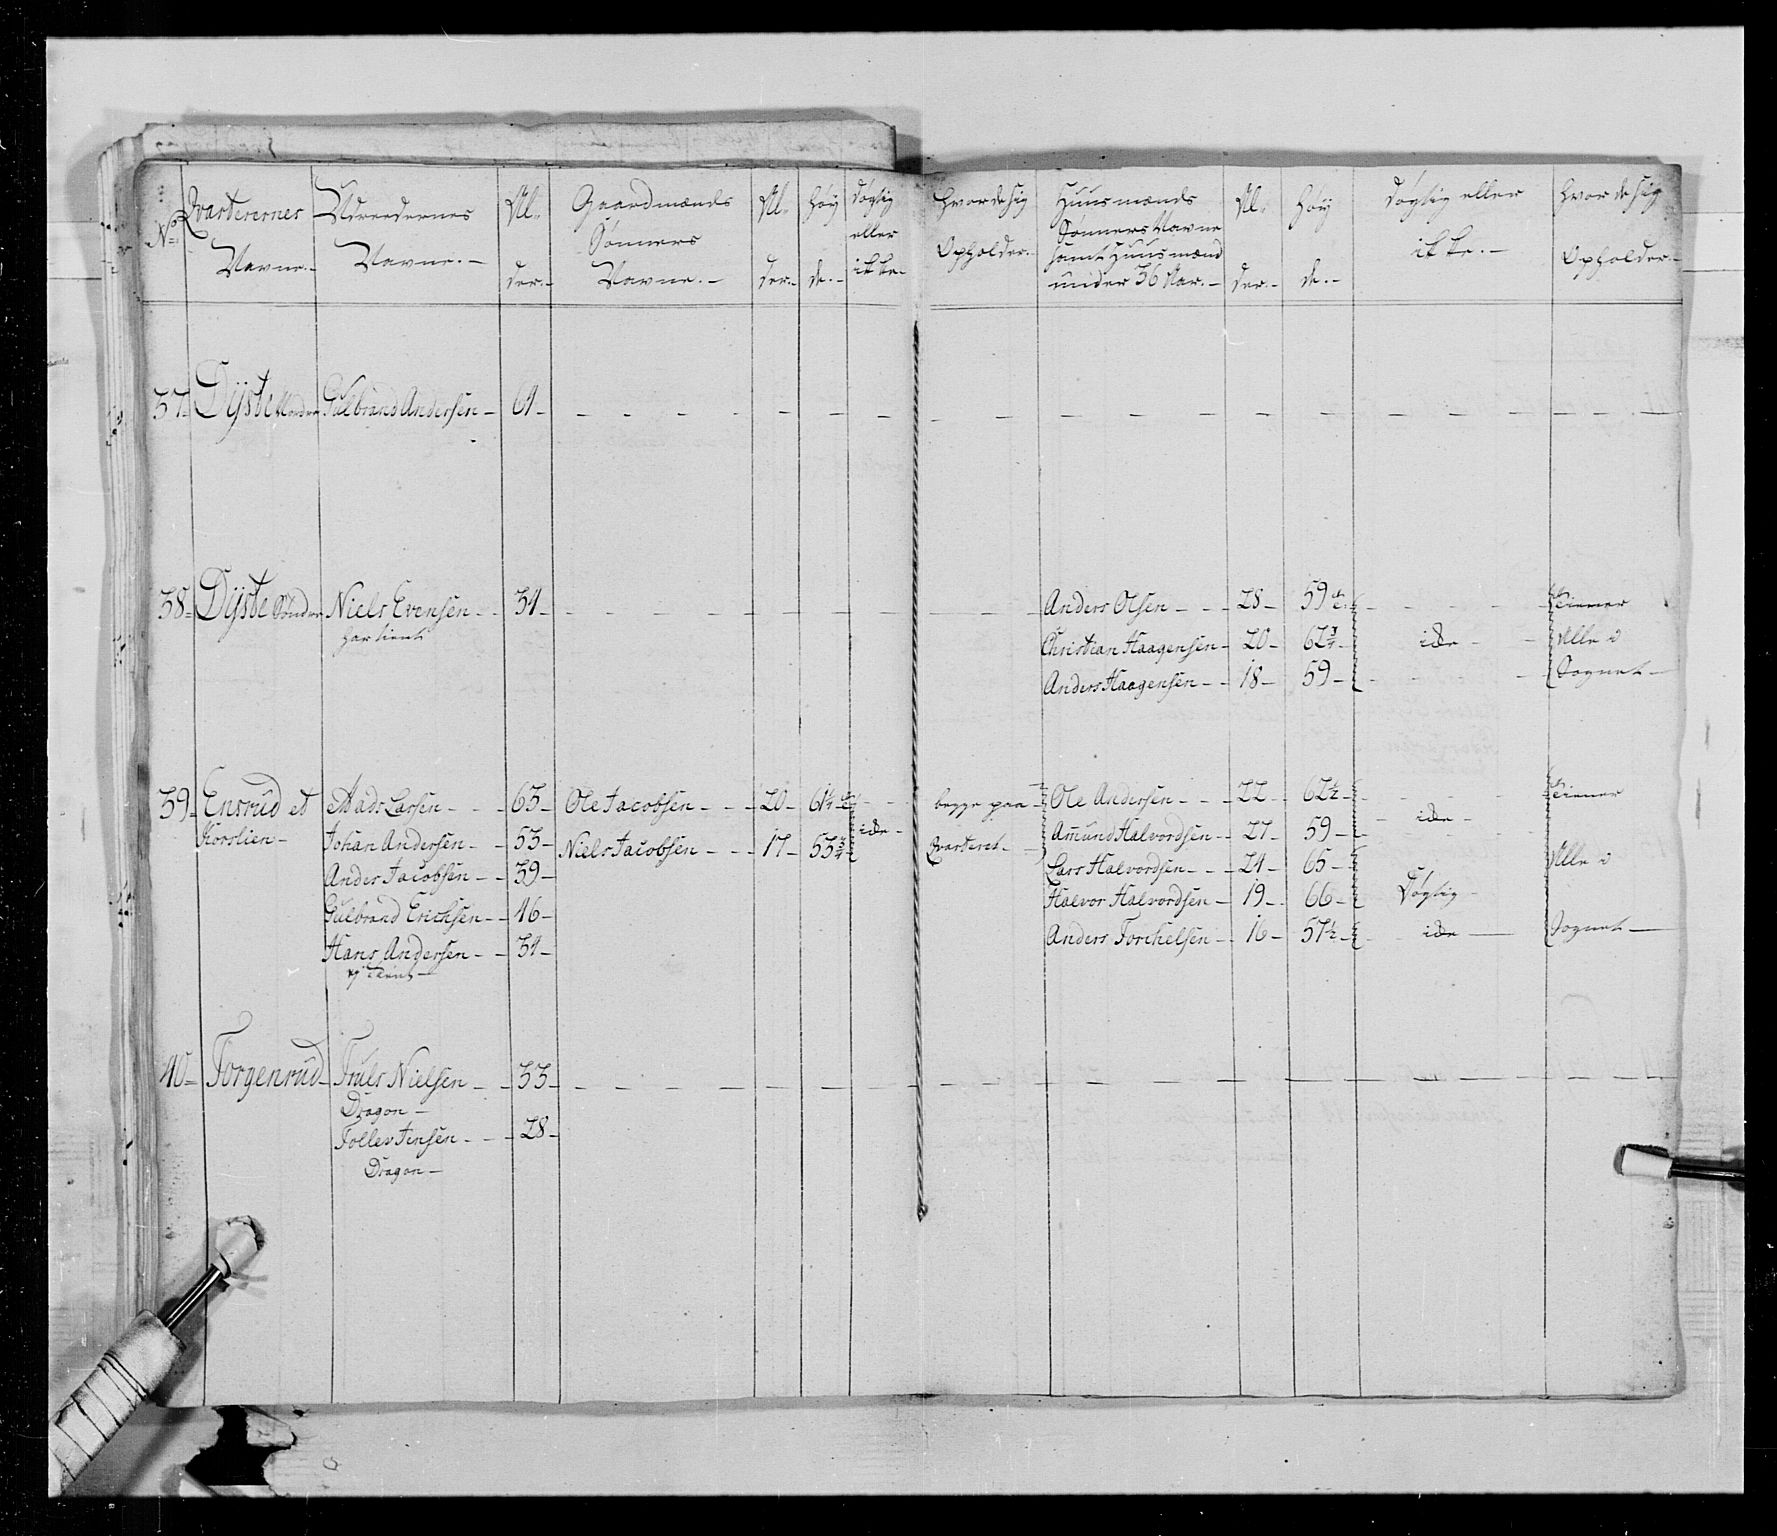 No Qvarterernes Navne.- Udreedernes Navne.- Al- der.- Gaardmænds Sönners Navne.- Al- der.- Höy de.- Dögtig eller ikke.- Hvor de sig Opholder.- Huusmænds Sönners Navne samt Huusmænd under 36 Aar.- Al- der.- Höy de.- Dögtig eller ikke.- Hvor de sig Opholder.-
37- Dÿste Nordre Gulbrand Andersen - 64-
38- Dÿste Sönder Niels Evensen - - 34- Anders Olsen - - - 28- 59
har tient Christian Haagensen - 20- 62 3/4 - Alle i
Anders Haagensen - - 18- 59- Sognet -
39- Ensrud et Mads Larsen - - - 65- Ole Jacobsen - - - 20- 61 1/4 begge paa Ole Andersen - - - 22- 62 1/2 -
Korslien- Johan Andersen - - 53- Niels Jacobsen - - - 17- 53 3/4 Qvarteret - Amund Halvordsen - 27- 59-
Anders Jacobsen - - 39- Lars Halvordsen - - - 24- 65- Alle i
Gulbrand Erichsen - - 46- Halvor Halvordsen - 19- 66- Dögtig -
Hans Andersen - - 34- Anders Torchelsen - - 16- 57 1/2 - Sognet -
ej tient -
40- Torgenrud- Truls Nielsen - - 33-
Dragon -
Tollev Jensen - - - 28-
Dragon -